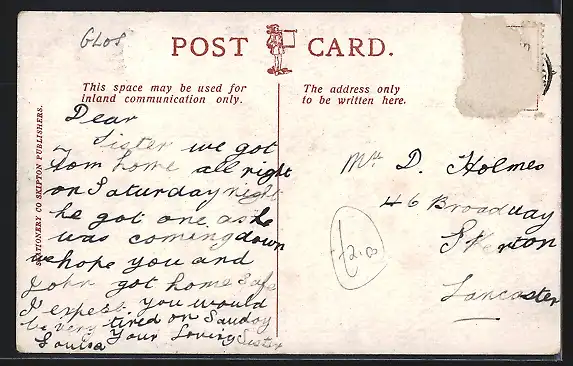 GLOS
POST CARD.
This space may be used for
inland communication only.
The address only
to be written here.
STATIONERY CO SKIPTON PUBLISHERS.
Dear
Sister we got
Tom home all right
on Saturday night
he got one as he
was coming down
we hope you and
John got home safe
I expect you would
be very tired on Sunday
Your Loving Sister
Louisa
Mrs D. Holmes
46 Broadway
Skerton
Lancaster